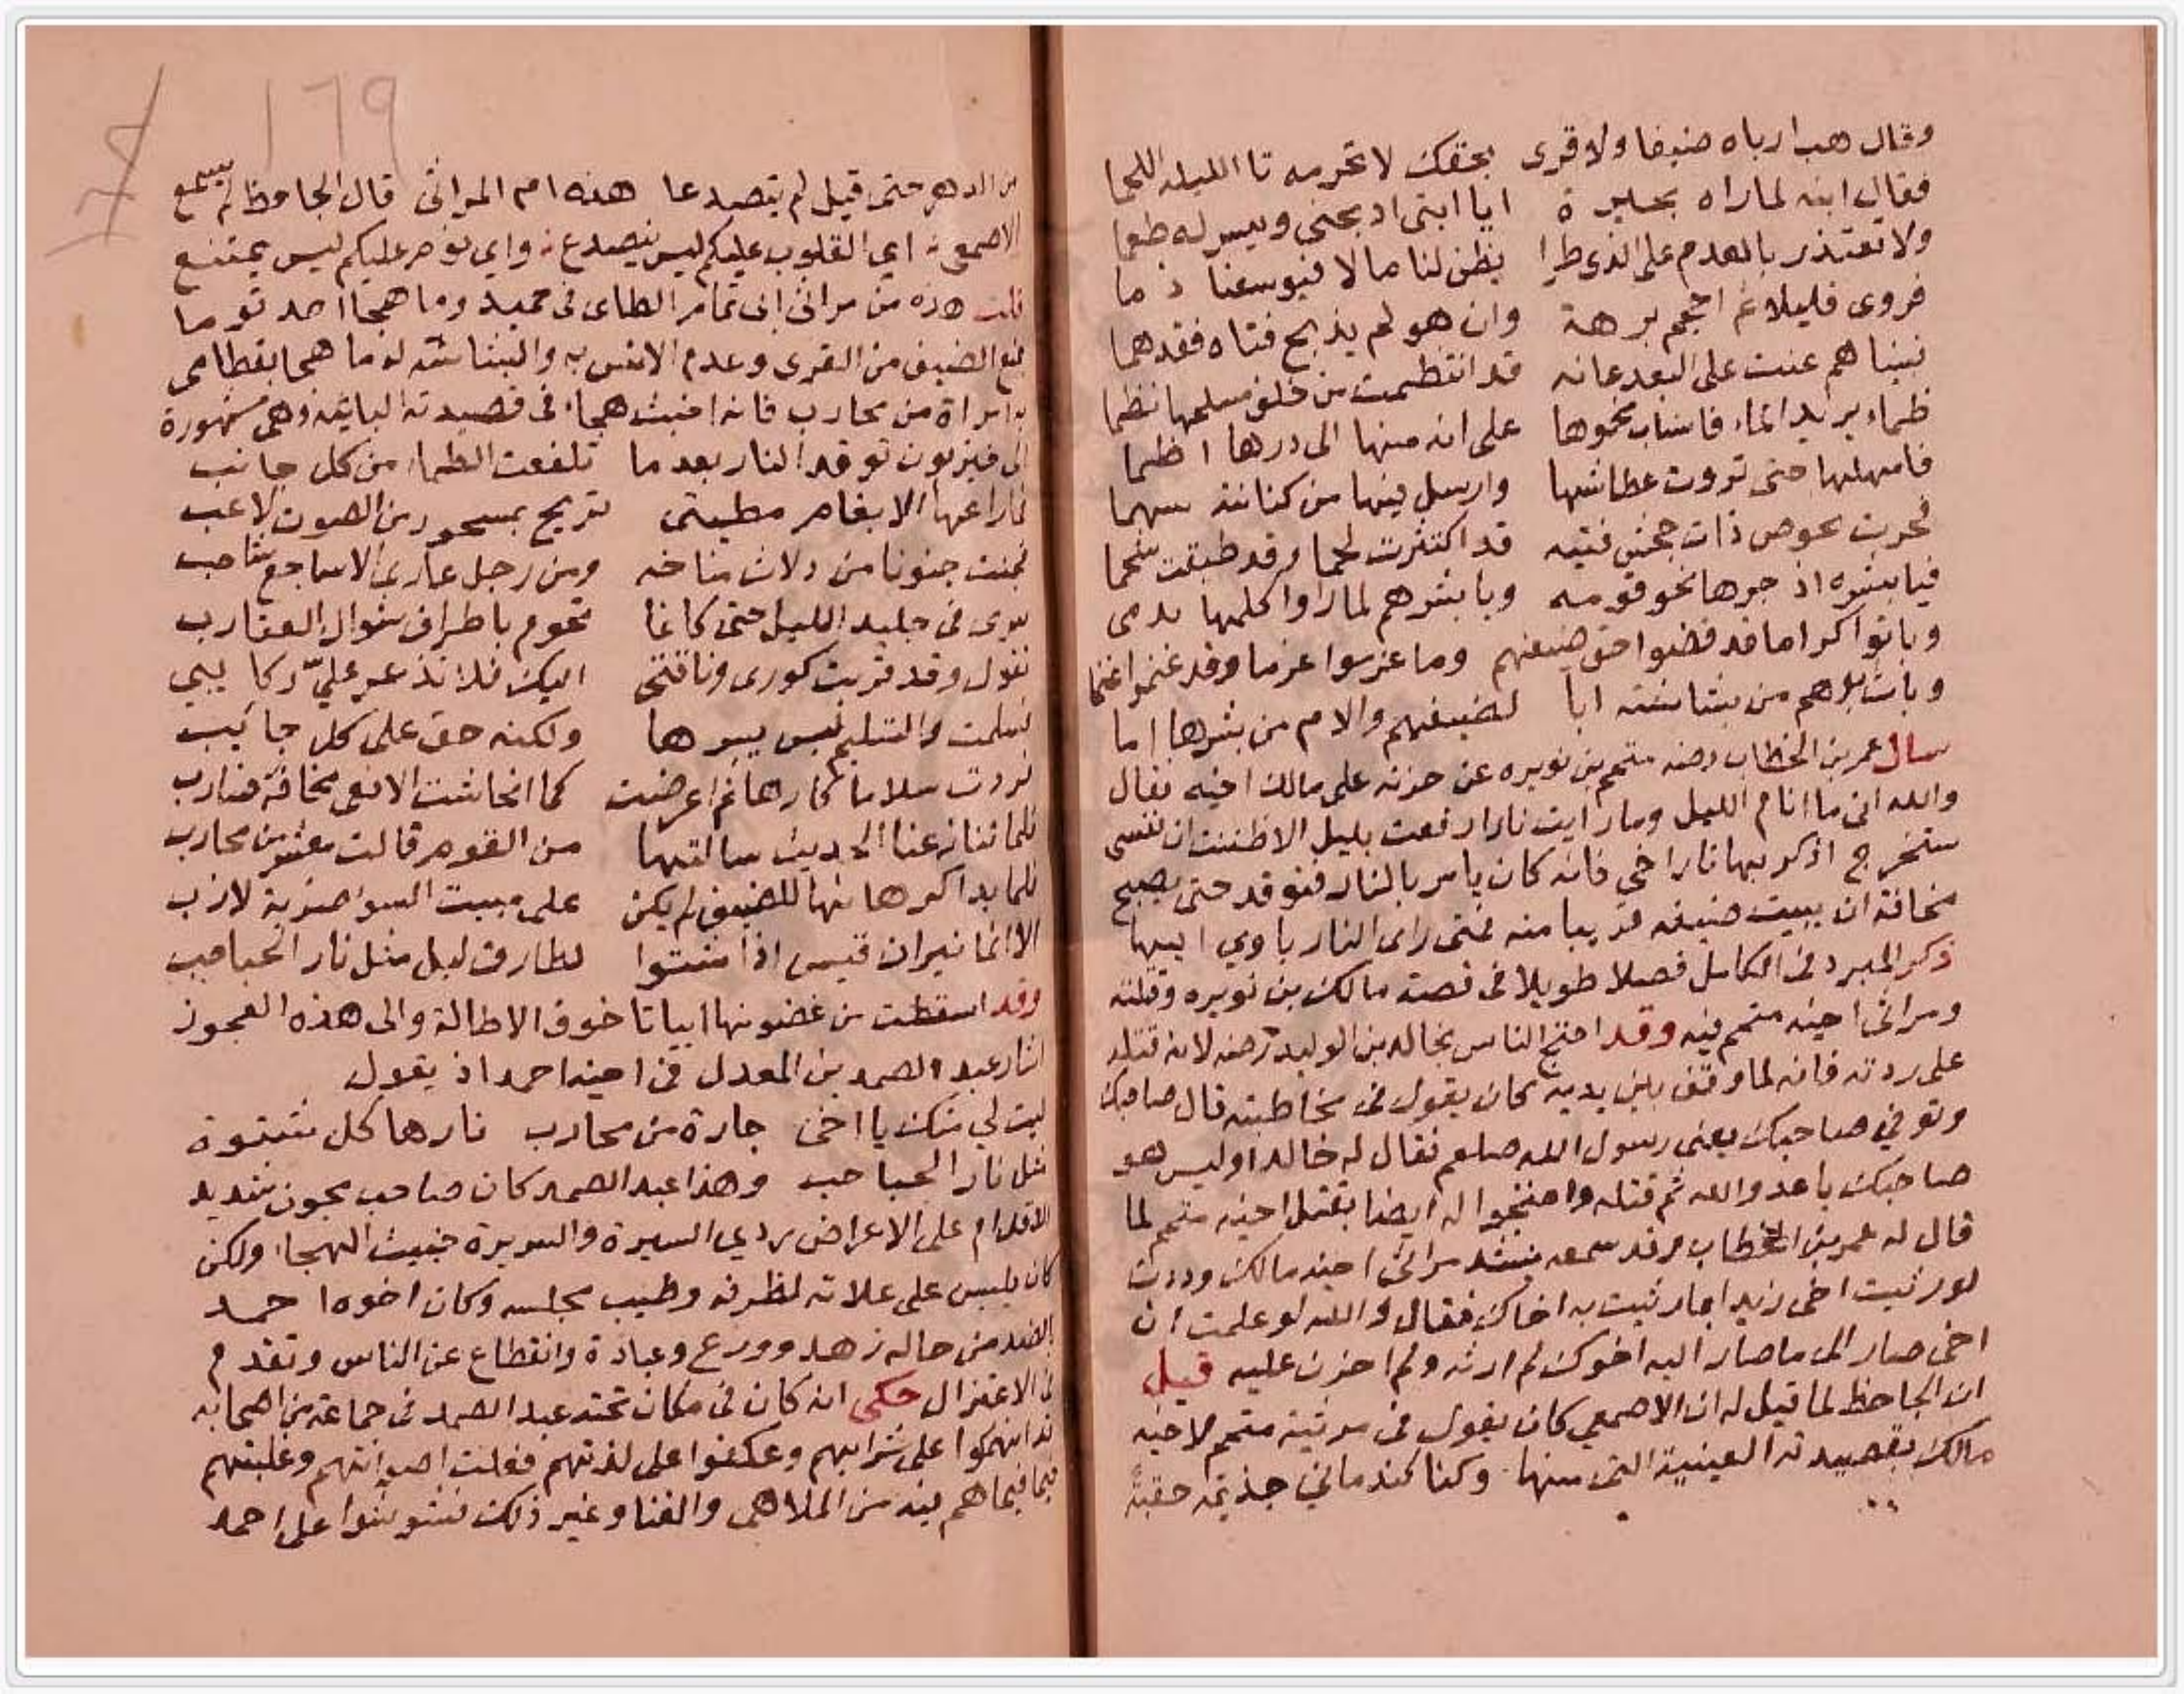 وقال هب ارباه ضيفا ولا قرى بحقك لا تحرمه تا الليله اللحما
فقال ابنه لما راه بحيرة ايا ابتى اذبحنى ويسر له طعما
ولا تعتذر بالعدم على الذى طرا يظن لنا مالا فيوسعنا ذما
فروى قليلا ثم احجم برهة وان هو لم يذبح فتاه فقد هما
فبينا هم عنت على البعد عانه قد انتظمت من خلف مسلحها نظما
ظماء يريد الماء فانساب نحوها على انه منها الى درها اظما
فامهلها حتى تروت عطاشها وارسل فيها من كنانته سهما
فخرت نحوص ذات جحش فتيه قد اكتنزت لحما وقد طبقت شحما
فيا بشره اذ جرها نحو قومه ويا بشرهم لما راوا كلمها يدمى
وباتوا كراما قد قضوا حق ضيفهم وما غرموا غرما وقد غنموا غنما
وبات ابوهم من بشاشته ابا لضيفهم والام من بشرها اما
سال عمر بن الخطاب رضه متمم بن نويره عن حزنه على مالك اخيه فقال
والله انى ما انام الليل وما رايت نارا رفعت بليل الا ظننت ان نفسى
ستخرج اذكر بها نار اخي فانه كان يامر بالنار فتوقد حتى يصبح
مخافة ان يبيت ضيفه قريبا منه فمتى راى النار ياوي اليها
ذكر المبرد فى الكامل فصلا طويلا فى قصة مالك بن نويره وقتله
ومراثى اخيه متمم فيه وقد احتج الناس لخالد بن الوليد رضه لانه قتله
على ردته فانه لما وقف بين يديه كان يقول فى مخاطبته قال صاحبك
وتوفي صاحبك يعنى رسول الله صلعم فقال له خالد اوليس هو
صاحبك يا عدو الله ثم قتله واحتجوا له ايضا بقتل اخيه متمم لما
قال له عمر بن الخطاب وقد سمعه ينشد مراثى اخيه مالك وددت
لو رثيت اخى زيدا بما رثيت به اخاك فقال والله لو علمت ان
اخى صار الى ما صار اليه اخوك لم ارثه ولم احزن عليه قيل
ان الجاحظ لما قيل له ان الاصمعي كان يقول فى مرثية متمم لاخيه
مالك بقصيدته العينية التى منها وكنا كندمانى جذيمة حقبة
١٦٩
من الدهر حتى قيل لم يتصدعا هذه ام المراثى قال الجاحظ لم يسمع
الاصمعى اي القلوب عليكم ليس ينصدع واي نوم عليكم ليس يمتنع
قلت هذه من مراثى ابى تمام الطاى فى حميد وما هجا احد قوما
بمنع الضيف من القرى وعدم الانس به والبشاشة له ما هجا به القطامى
امراة من محارب فانه اخبث هجاء فى قصيدته البايية وهى مشهورة
الى حيزبون توقد النار بعد ما تلفعت الظلماء من كل جانب
فما راعها الا بغام مطيتى تريح بمحسور من الصوت لاغب
فجنت جنونا من دلاث مناخه ومن رجل عاري الاشاجع شاحب
سرى فى جليد الليل حتى كانما تحوم باطراف شوال العقارب
تقول وقد قربت كورى وناقتى اليك فلا تذعر علي ركايبي
فسلمت والتسليم ليس يسرها ولكنه حق على كل جانب
فردت سلاما كارها ثم اعرضت كما انحاشت الافعى مخافة ضارب
فلما تنازعنا الحديث سالتها من القوم قالت معشر من محارب
فلما بدا كرهانها للضيف لم يكن على مبيت السوء ضربة لازب
الا انما نيران قيس اذا شتوا لطارق ليل مثل نار الحباحب
وقد اسقطت من غضونها ابياتا خوف الاطالة والى هذه العجوز
اشار عبد الصمد بن المعدل فى اخيه احمد اذ يقول
ليت لي منك يا اخى جارة من محارب نارها كل شتوة
مثل نار الحباحب وهذا عبد الصمد كان صاحب مجون شديد
الاقدام على الاعراض ردي السيرة والسريرة خبيث الهجاء ولكن
كان يلبس على علاته لظرفه وطيب مجلسه وكان اخوه احمد
بالضد من حاله زهد وورع وعبادة وانقطاع عن الناس وتقدم
فى الاعتزال حكى انه كان فى مكان تحته عبد الصمد فى جماعة من اصحابه
قد انهمكوا على شرابهم وعكفوا على لذتهم فعلت اصواتهم وغلبتهم
فيما هم فيه من الملاهى والغنا وغير ذلك فشوشوا على احمد